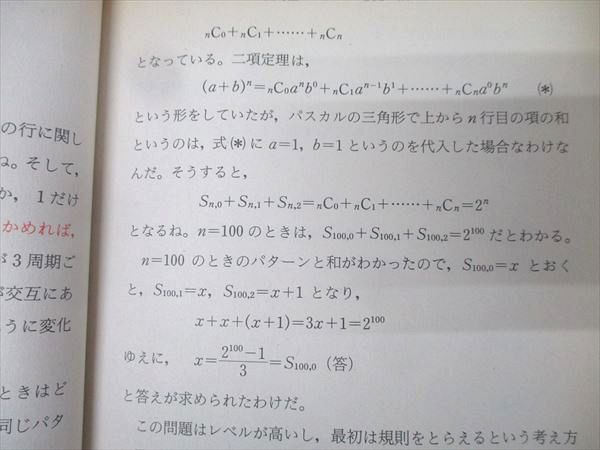 の行に関し
ね。そして,
か, 1だけ
かめれば,
が3周期ご
が交互にあ
うに変化
ときはど
同じパタ
ₙC₀+ₙC₁+……+ₙCₙ
となっている。二項定理は,
(a+b)ⁿ=ₙC₀aⁿb⁰+ₙC₁aⁿ⁻¹b¹+……+ₙCₙa⁰bⁿ (*)
という形をしていたが, パスカルの三角形で上からn行目の項の和
というのは, 式(*)にa=1, b=1というのを代入した場合なわけな
んだ。そうすると,
Sₙ,₀+Sₙ,₁+Sₙ,₂=ₙC₀+ₙC₁+……+ₙCₙ=2ⁿ
となるね。n=100のときは, S₁₀₀,₀+S₁₀₀,₁+S₁₀₀,₂=2¹⁰⁰だとわかる。
n=100のときのパターンと和がわかったので, S₁₀₀,₀=xとおく
と, S₁₀₀,₁=x, S₁₀₀,₂=x+1となり,
x+x+(x+1)=3x+1=2¹⁰⁰
ゆえに, x=(2¹⁰⁰-1)/3=S₁₀₀,₀ (答)
と答えが求められたわけだ。
この問題はレベルが高いし, 最初は規則をとらえるという考え方